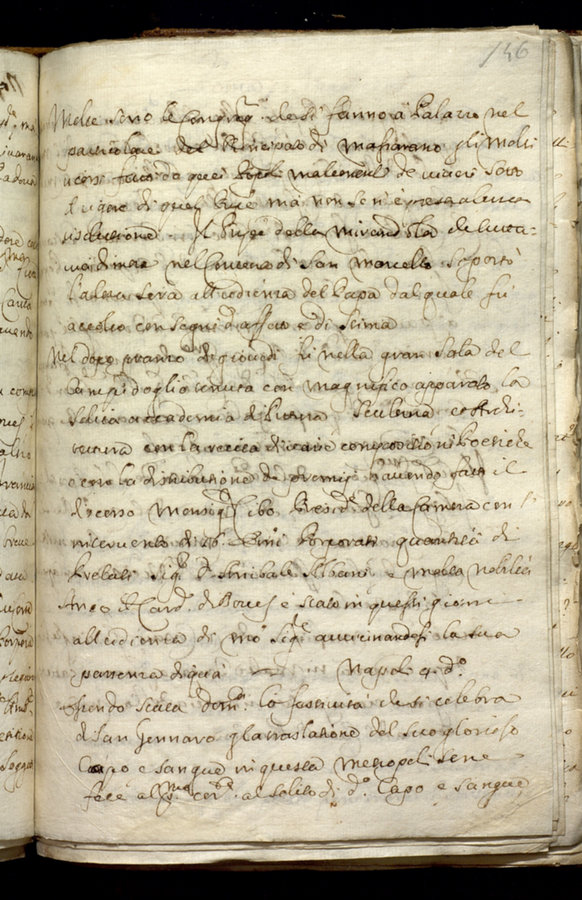 146
Molte sono le Congreg.ni che si fanno à Palazzo nel
particolare del Principato di Masserano gli molti
ricorsi di quei Popoli malcontenti de vivere sotto
il vigore di quel ma non se n'è presa alcuna
risoluzione. Il della Mirandola che tutta-
via dimora nel Convento di San Marcello si portò
l'altra sera all'udienza del Papa dal quale fù
accolto con segni d'affetto e di stima
Nel dopo pranzo di giovedi fù nella gran Sala del
Campidoglio tenuta con magnifico apparato la
solita accademia di Pittura Scultura et Archi-
tettura con la recita di varie compositioni Poetiche
e con la distributione de premij havendo fatto il
discorso Monsig.r Cibo Presid.e della Camera con l'
intervento di 26 Em.i Porporati quantità di
Prelati Sig.r D. Annibale Albani e molta nobiltà
Anco il Card. di è stato in questi giorni
all'udienza di N'ro Sig.re avvicinandosi la sua
partenza di quà Napoli 4. d.o
Essendo stata Dom.ca la festività che si celebra
di San Gennaro p la traslatione del suo glorioso
Capo e sangue in questa Metropoli se ne
fece al solito di d.o Capo e sangue